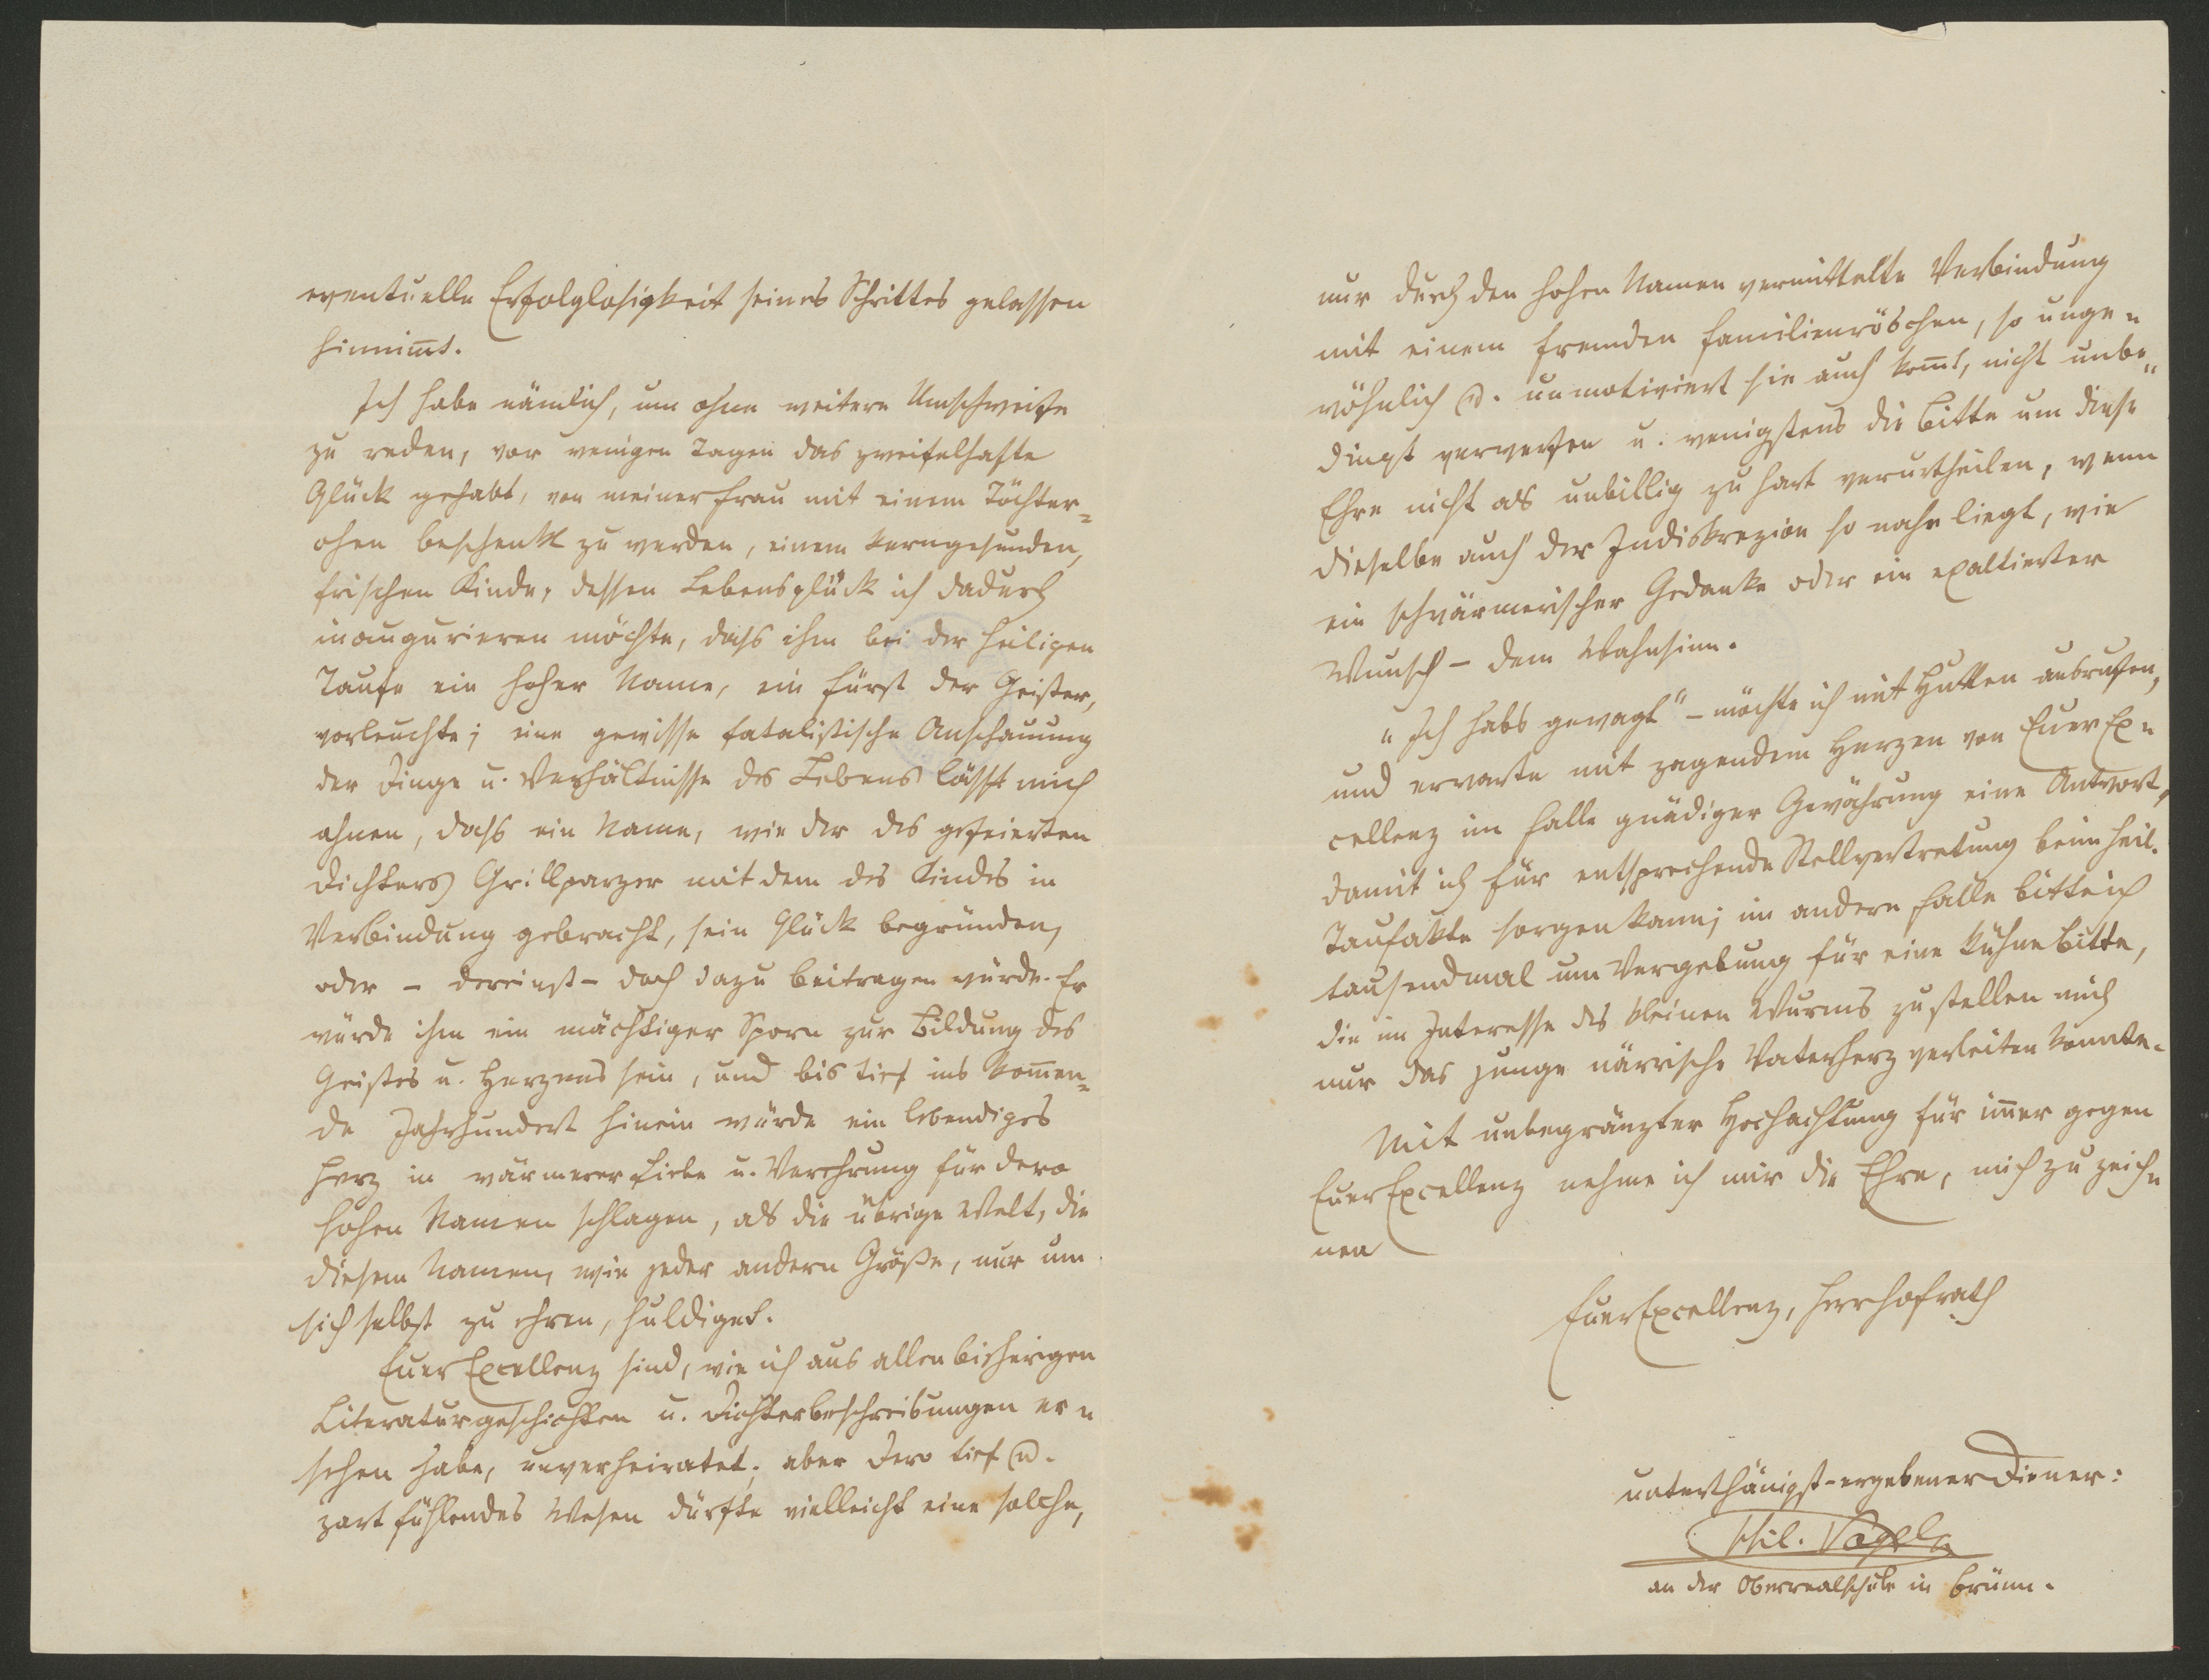 eventuelle Erfolglosigkeit seines Schrittes gelassen
hinnim̄t.
Ich habe nämlich, um ohne weitere Umschweife
zu reden, vor wenigen Tagen das zweifelhafte
Glück gehabt, von meiner Frau mit einem Töchter=
chen beschenkt zu werden, einem kerngesunden,
frischen Kinde, dessen Lebensglück ich dadurch
inaugurieren möchte, dass ihm bei der heiligen
Taufe ein hoher Name, ein Fürst der Geister,
vorleuchte; eine gewisse fatalistische Anschauung
der Dinge u. Verhältnisse des Lebens lässt mich
ahnen, dass ein Name, wie der des gefeierten
Dichters Grillparzer mit dem des Kindes in
Verbindung gebracht, sein Glück begründen,
oder – dereinst – doch dazu beitragen würde. Er
würde ihm ein mächtiger Sporn zur Bildung des
Geistes u. Herzens sein, und bis tief ins kom̄en=
de Jahrhundert hinein würde ein lebendiges
Herz in wärmerer Liebe u. Verehrung für dero
hohen Namen schlagen, als die übrige Welt, die
diesem Namen, wie jeder andern Größe, nur um
sich selbst zu ehren, huldiget.
Euer Excellenz sind, wie ich aus allen bisherigen
Literaturgeschichten u. Dichterbeschreibungen er=
sehen habe, unverheiratet; aber Dero tief u.
zart fühlendes Wesen dürfte vielleicht eine solche,
nur durch den hohen Namen vermittelte Verbindung
mit einem fremden Familienröschen, so unge=
wöhnlich u. unmotiviert sie auch kom̄t, nicht unbe=
dingt verwerfen u. wenigstens die Bitte um diese
Ehre nicht als unbillig zu hart verurtheilen, wenn
dieselbe auch der Indiskrezion so nahe liegt, wie
ein schwärmerischer Gedanke oder ein exaltierter
Wunsch – dem Wahnsinn.
"Ich habs gewagt" – möchte ich mit Hutten ausrufen,
und erwarte mit zagendem Herzen von Euer Ex=
cellenz im Falle gnädiger Gewährung eine Antwort,
damit ich für entsprechende Stellvertretung beim heil.
Taufakte sorgen kann; im andern Falle bitte ich
tausendmal um Vergebung für eine kühne Bitte,
die im Interesse des kleinen Wurms zu stellen mich
nur das junge närrische Vaterherz verleiten konnte.
Mit unbegränzter Hochachtung für im̄er gegen
Euer Excellenz nehme ich mir die Ehre, mich zu zeich=
nen
Euer Excellenz, Herr Hofrath
unterthänigst-ergebener Diener:
Phil. Vogel
an der Oberrealschule in Brünn.